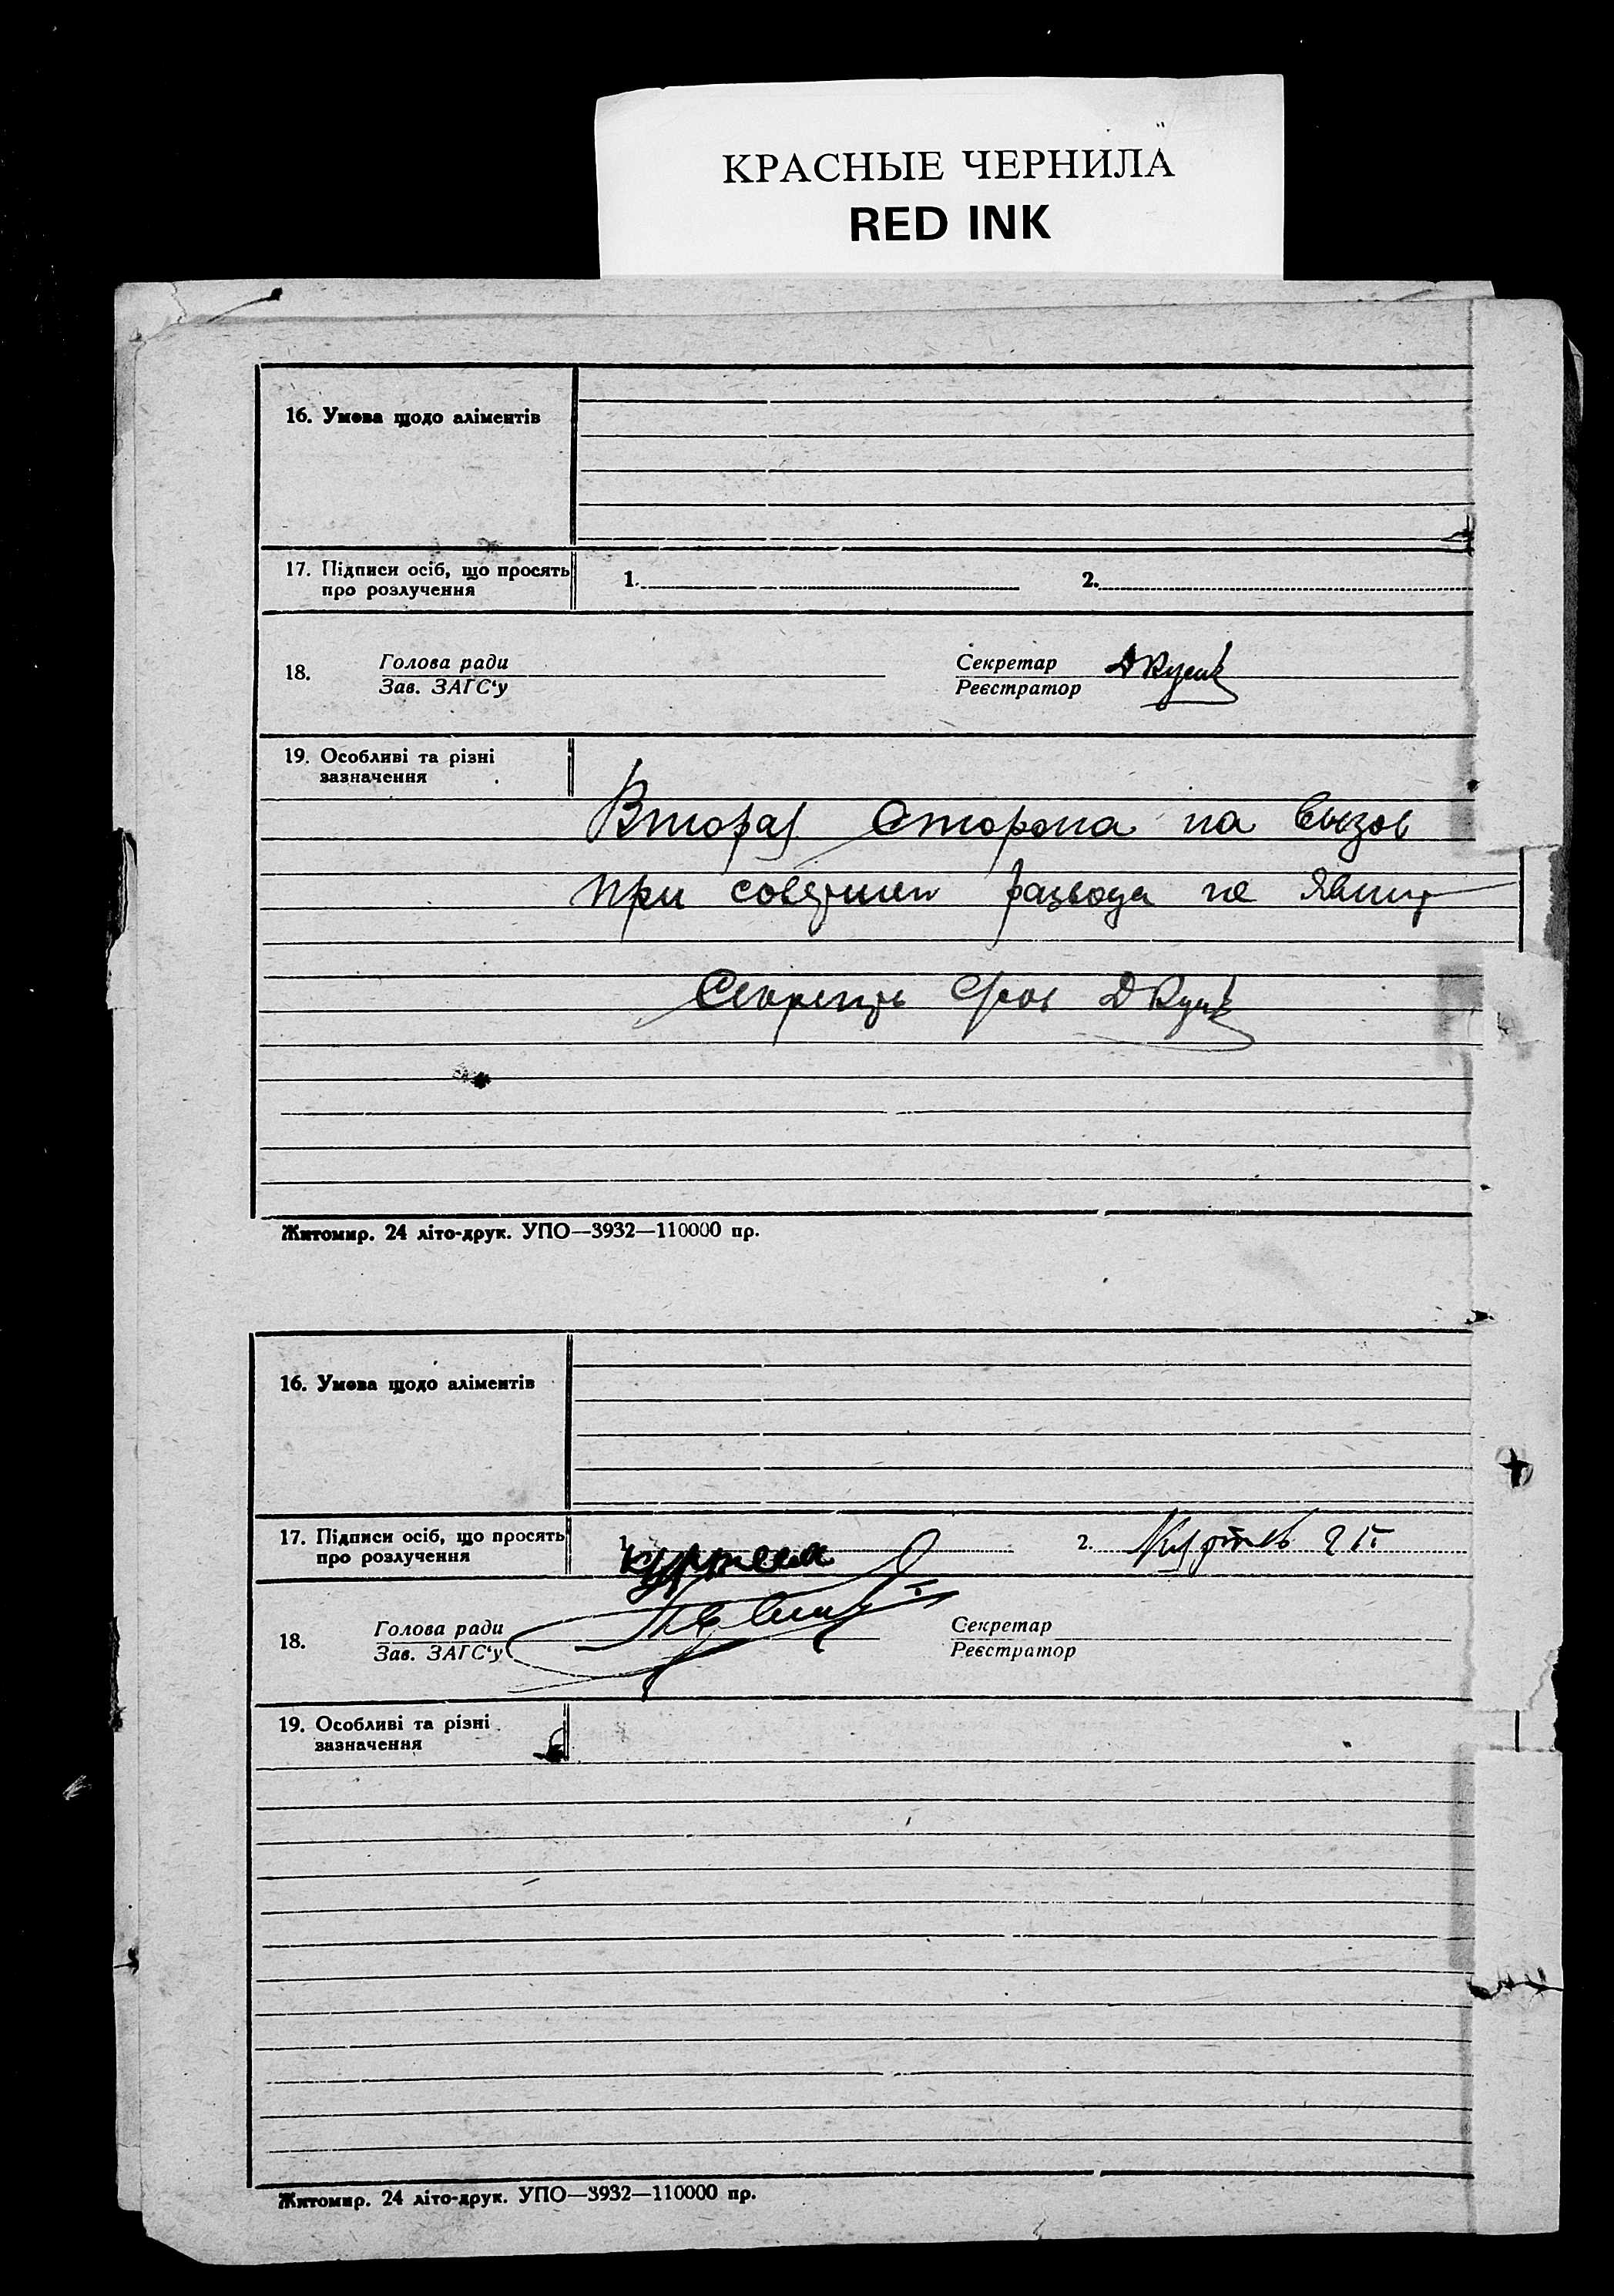 КРАСНЫЕ ЧЕРНИЛА
RED INK
16. Умова щодо аліментів
17. Підписи осіб, що просять про розлучення
1.
2.
18.
Голова ради
Зав. ЗАГС‘у
Секретар
Реєстратор
19. Особливі та різні зазначення
Вторая Сторона на вызов
при развода не
Житомир. 24 літо-друк. УПО—3932—110000 пр.
16. Умова щодо аліментів
17. Підписи осіб, що просять про розлучення
1.
2.
18.
Голова ради
Зав. ЗАГС‘у
Секретар
Реєстратор
19. Особливі та різні зазначення
Житомир. 24 літо-друк. УПО—3932—110000 пр.